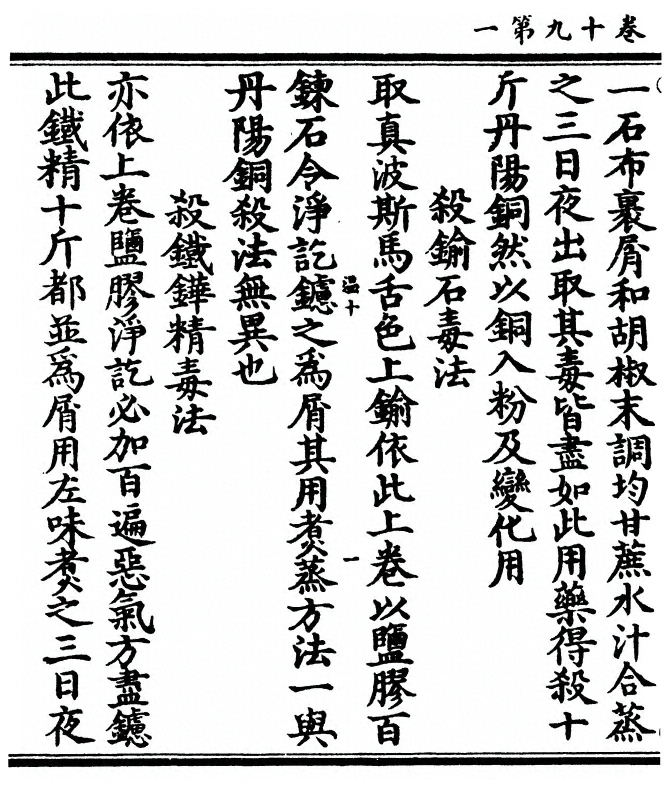 卷十九第一
一石布裹屑和胡椒末調均甘蔗水汁合蒸
之三日夜出取其毒皆盡如此用藥得殺十
斤丹陽銅然以銅入粉及變化用
殺鍮石毒法
取真波斯馬舌色上鍮依此上卷以鹽膠百
鍊石令淨訖鑢之為屑其用煑蒸方法一與
溫十
一
丹陽銅殺法無異也
殺鐵鏵精毒法
亦依上卷鹽膠淨訖必加百遍惡氣方盡鑢
此鐵精十斤都並為屑用左味煑之三日夜